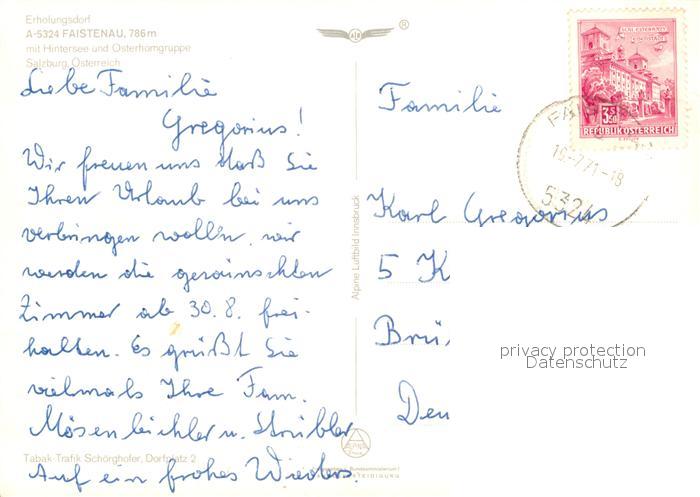 Erholungsdorf
A-5324 FAISTENAU, 786 m
mit Hintersee und Osterhorngruppe
Salzburg, Österreich
Liebe Familie
Gregorius!
Wir freuen uns daß Sie
Ihren Urlaub bei uns
verbringen wollen, wir
werden die gewünschten
Zimmer ab 30.8. frei-
halten. Es grüßt Sie
vielmals Ihre Fam.
Mösenbichler u. Strubler
Tabak-Trafik Schörghofer, Dorfplatz 2
Auf ein frohes Wieders.
Alpine Luftbild Innsbruck
®
3.50
REPUBLIK ÖSTERREICH
16.-7.71-18
5324
Familie
Karl Gregorius
5 K
Brü
Den
privacy protection
Datenschutz